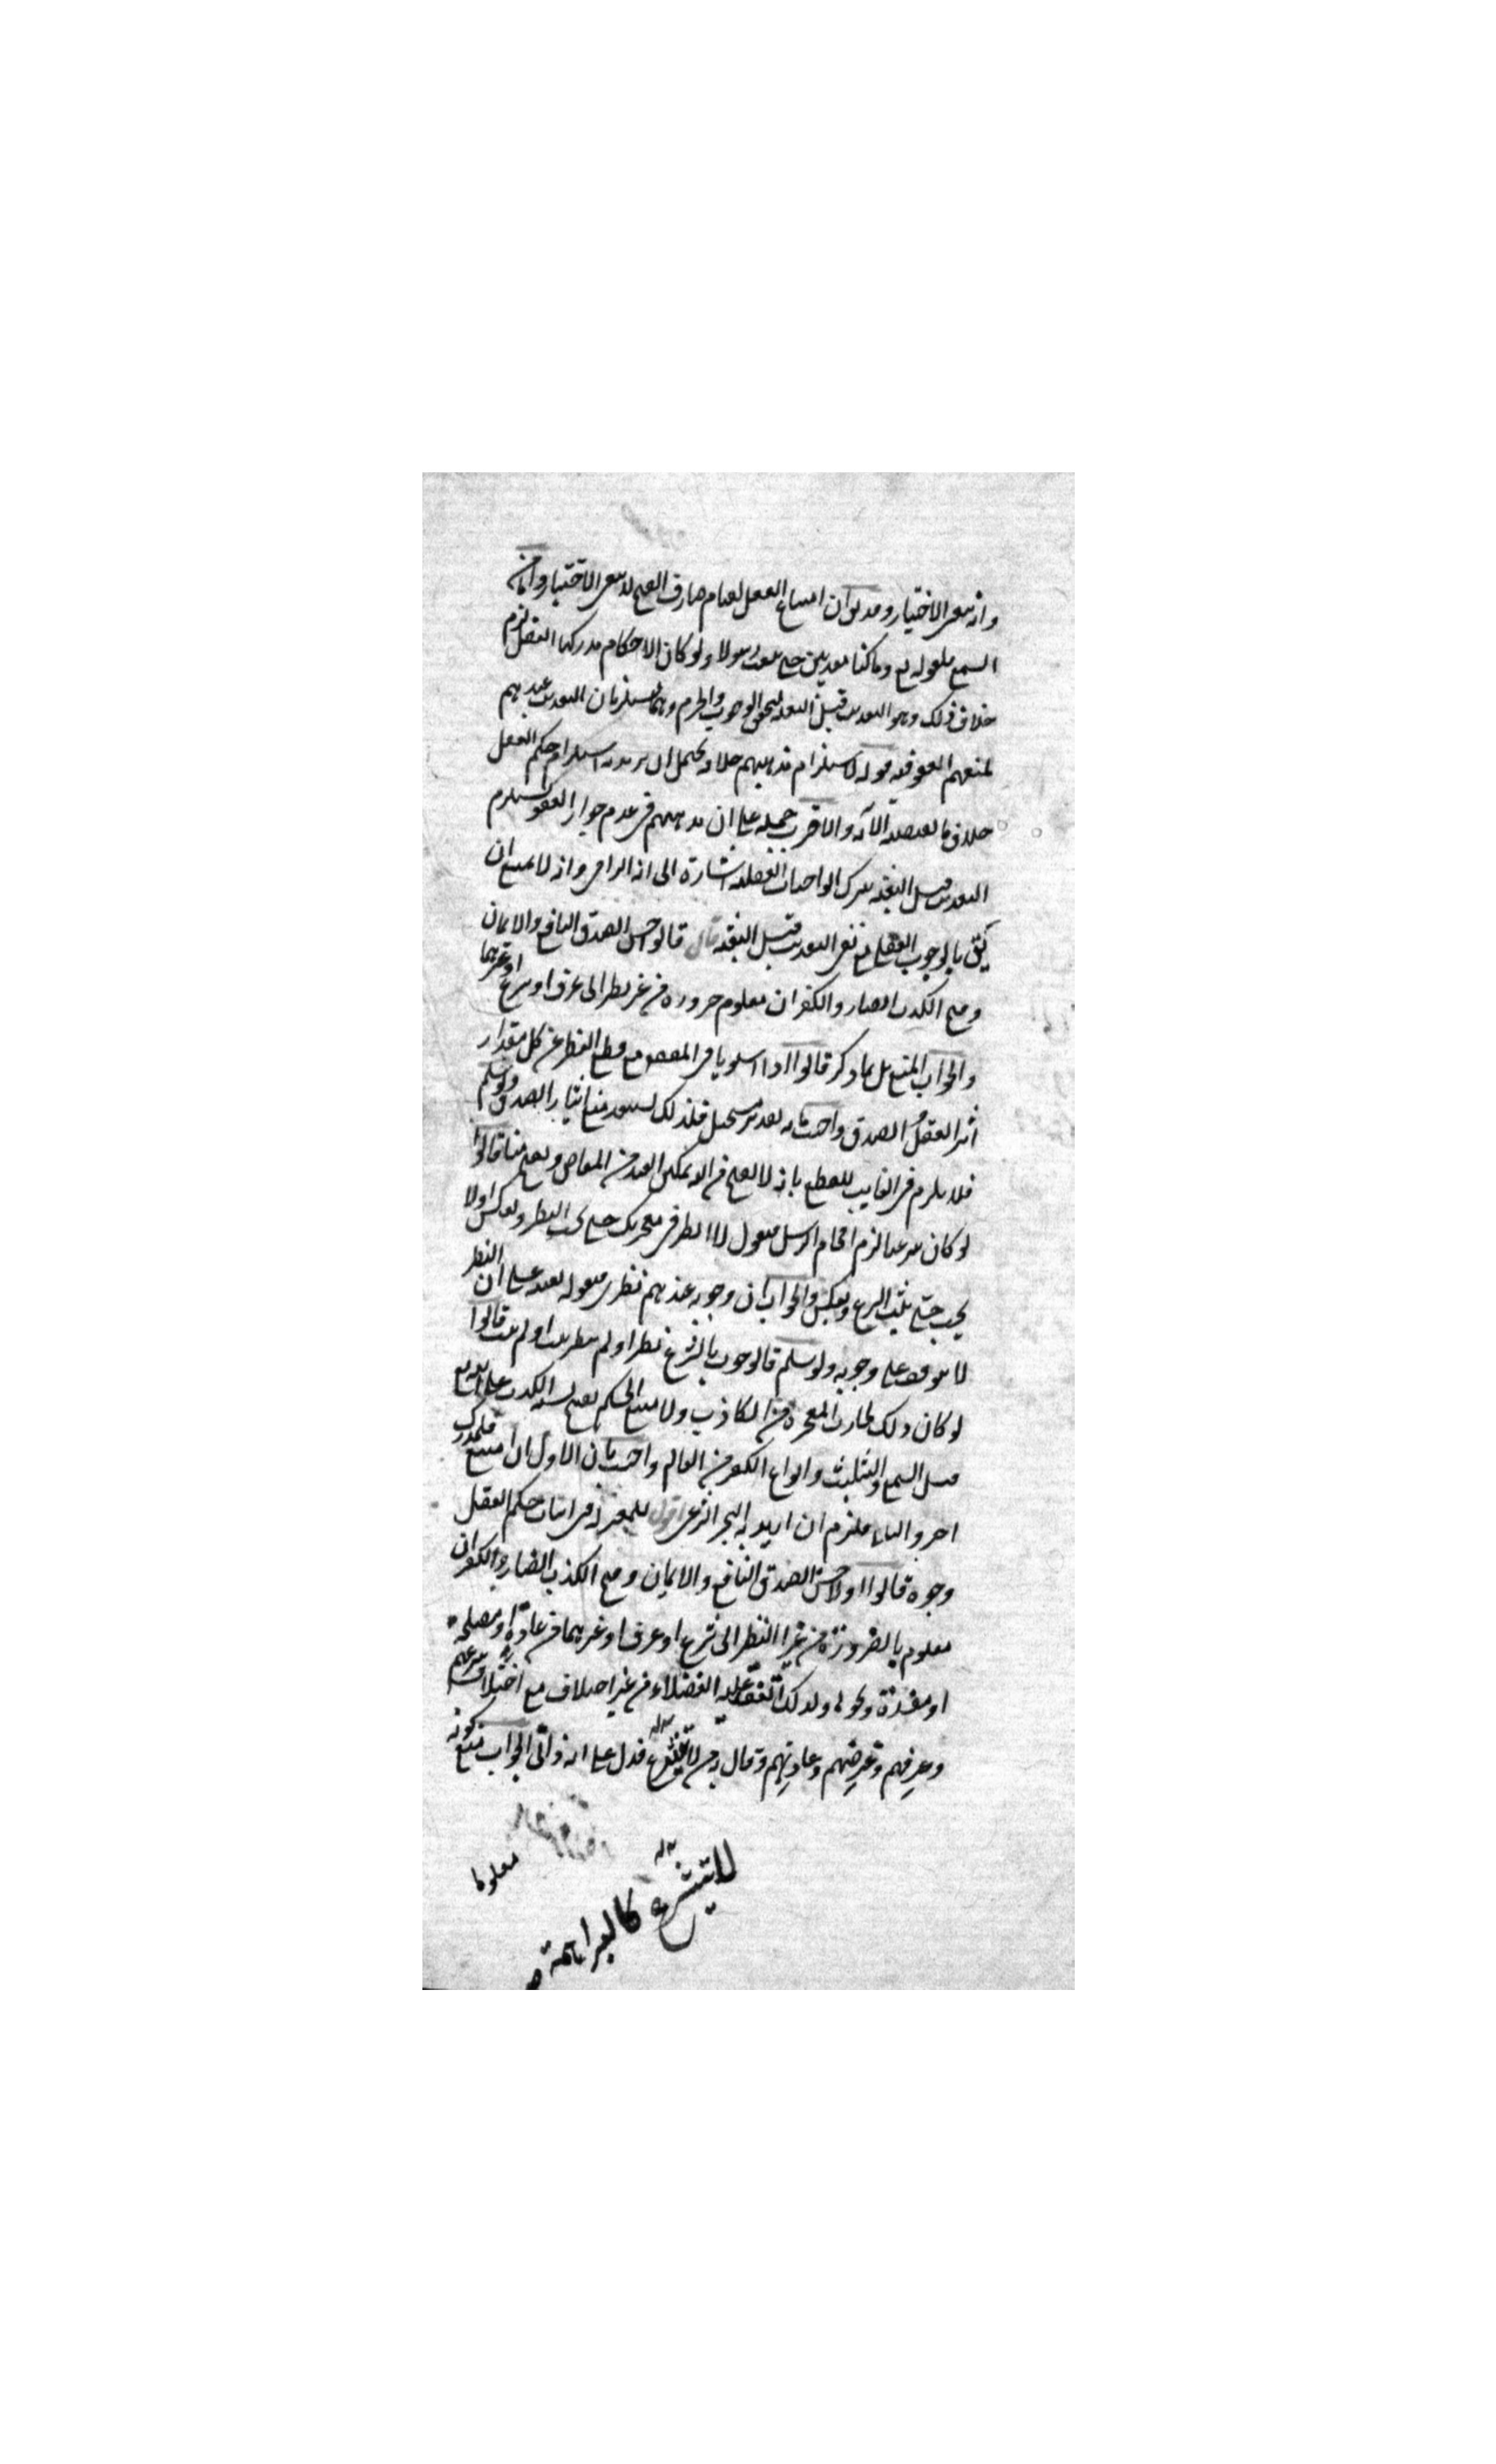 وانه ينفي الاختيار وقد بين ان امتناع الفعل لقيام صارف القبح لا ينفي الاختيار واما من
السمع فلقوله تع وما كنا معذبين حتى نبعث رسولا ولو كان الاحكام مدركها العقل لزم
خلاف ذلك وهو التعذيب قبل البعثة لتحقق الوجوب والحرم وهما يستلزمان التعذيب عندهم
لمنعهم العفو قوله لاستلزام مذهبهم خلافه يحتمل ان يريد به استلزام حكم العقل
خلاف ما يقتضيه الآية والاقرب حمله على ان مذهبهم في عدم جواز العفو يستلزم
التعذيب قبل البعثة بترك الواجبات العقلية اشارة الى انه الزامي وانه لا يمتنع ان
بالوجوب العقلي مع نفي التعذيب قبل البعثة قال قالوا حسن الصدق النافع والايمان
وقبح الكذب الضار والكفران معلوم ضرورة من غير نظر الى عرف او شرع او غيرهما
والجواب المنع بل بما ذكر قالوا اذا استويا في المقصود مع قطع النظر عن كل مقدار
آثر العقل الصدق واجيب بانه تقدير مستحيل فلذلك يستبعد منع ايثار الصدق ولو سلم
فلا يلزم في الغايب للقطع بانه لا يقبح من الله تمكين العبد من المعاصي ويقبح منا قالوا
لو كان شرعيا لزم افحام الرسل فيقول لا انظر في معجزتك حتى يجب النظر ويعكس او لا
يجب حتى يثبت الشرع ويعكس والجواب ان وجوبه عندهم نظري فيقوله بعينه على ان النظر
لا يتوقف على وجوبه ولو سلم فالوجوب بالشرع نظر او لم ينظر ثبت او لم يثبت قالوا
لو كان ذلك لجازت المعجزة من الكاذب ولا متنع الحكم بقبح نسبة الكذب على الله تع
قبل السمع والتثليث وانواع الكفر من العالم واجيب بان الاول ان امتنع فلمدرك
اخر والثاني ملتزم ان اريد به التحريم الشرعي اقول للمعتزلة في اثبات حكم العقل
وجوه قالوا اولا حسن الصدق النافع والايمان وقبح الكذب الضار والكفران
معلوم بالضرورة من غير النظر الى شرع او عرف او غيرهما من عادة او مصلحة
او مفسدة ونحوها ولذلك اتفقت عليه العقلاء من غير اختلاف مع اختلاف شرعهم
وعرفهم وغرضهم وعادتهم وقال به من لا يتشرع فدل على انه ذاتي الجواب منع كونه
معلوما
لا يتشرع كالبراهمة